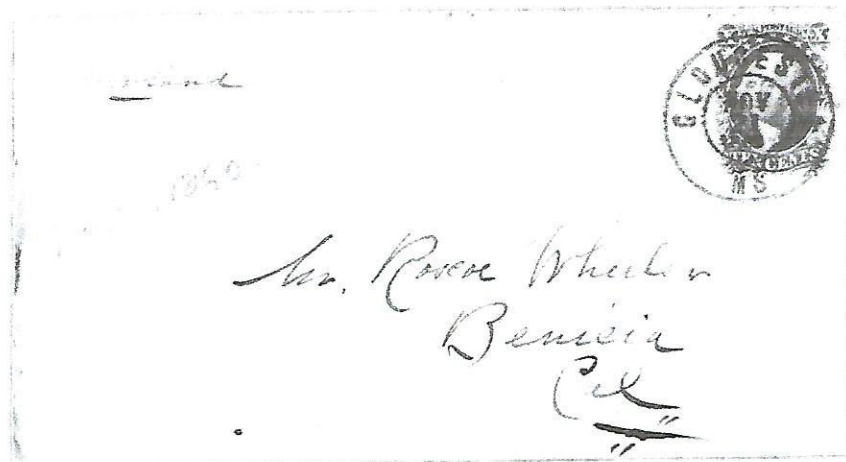 GLOUCEST
NOV
TEN CENTS
MS
1860
Mr. Roscoe Wheeler
Benicia
Cal